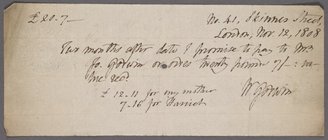 £20-7- No. 41, Skinner Street,
London, Nov. 12, 1808
Two months after date I promise to pay to Mr
Jo. Godwin or order twenty pounds 7/- va-
lue recd
£ 12.11 for my mother
7.16 for Harriet
W Godwin